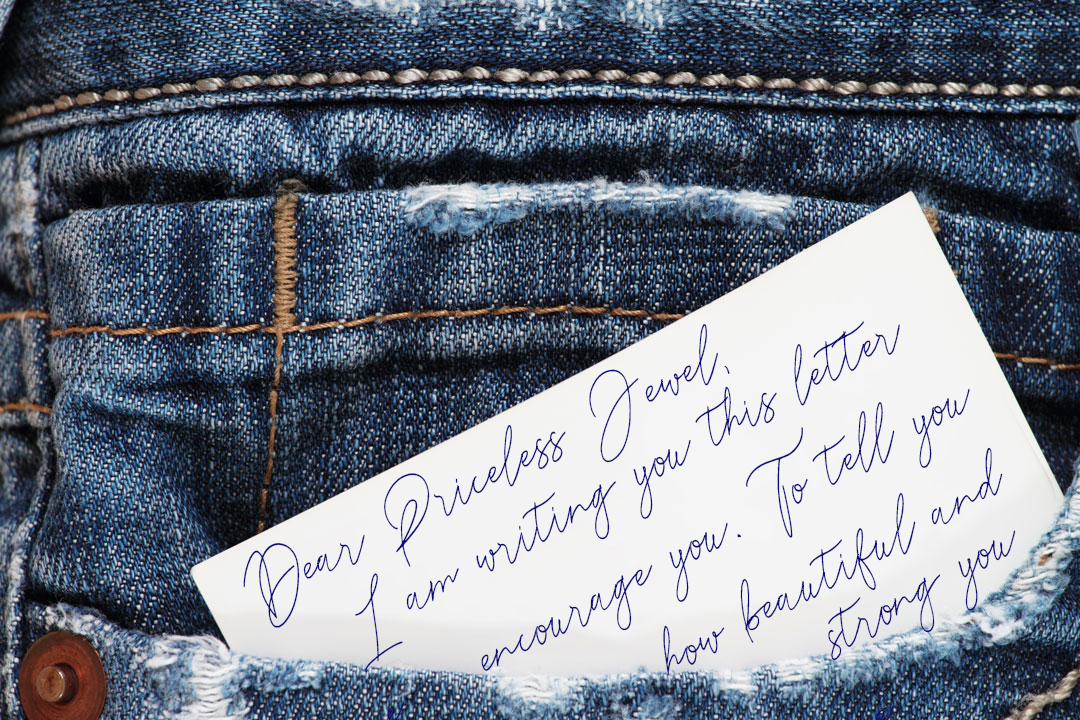 Dear Priceless Jewel,
I am writing you this letter
encourage you. To tell you
how beautiful and
strong you